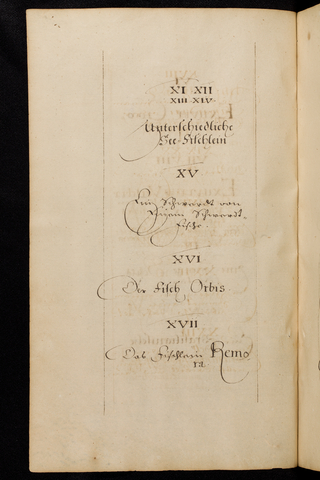 XI XII
XIII XIV
Unterschiedliche
See-Fischlein
XV
Ein Schwerdt von
Einem Schwerdt-
Fische.
XVI
Der Fisch Orbis.
XVII
Das Fischlein Remo
ra.